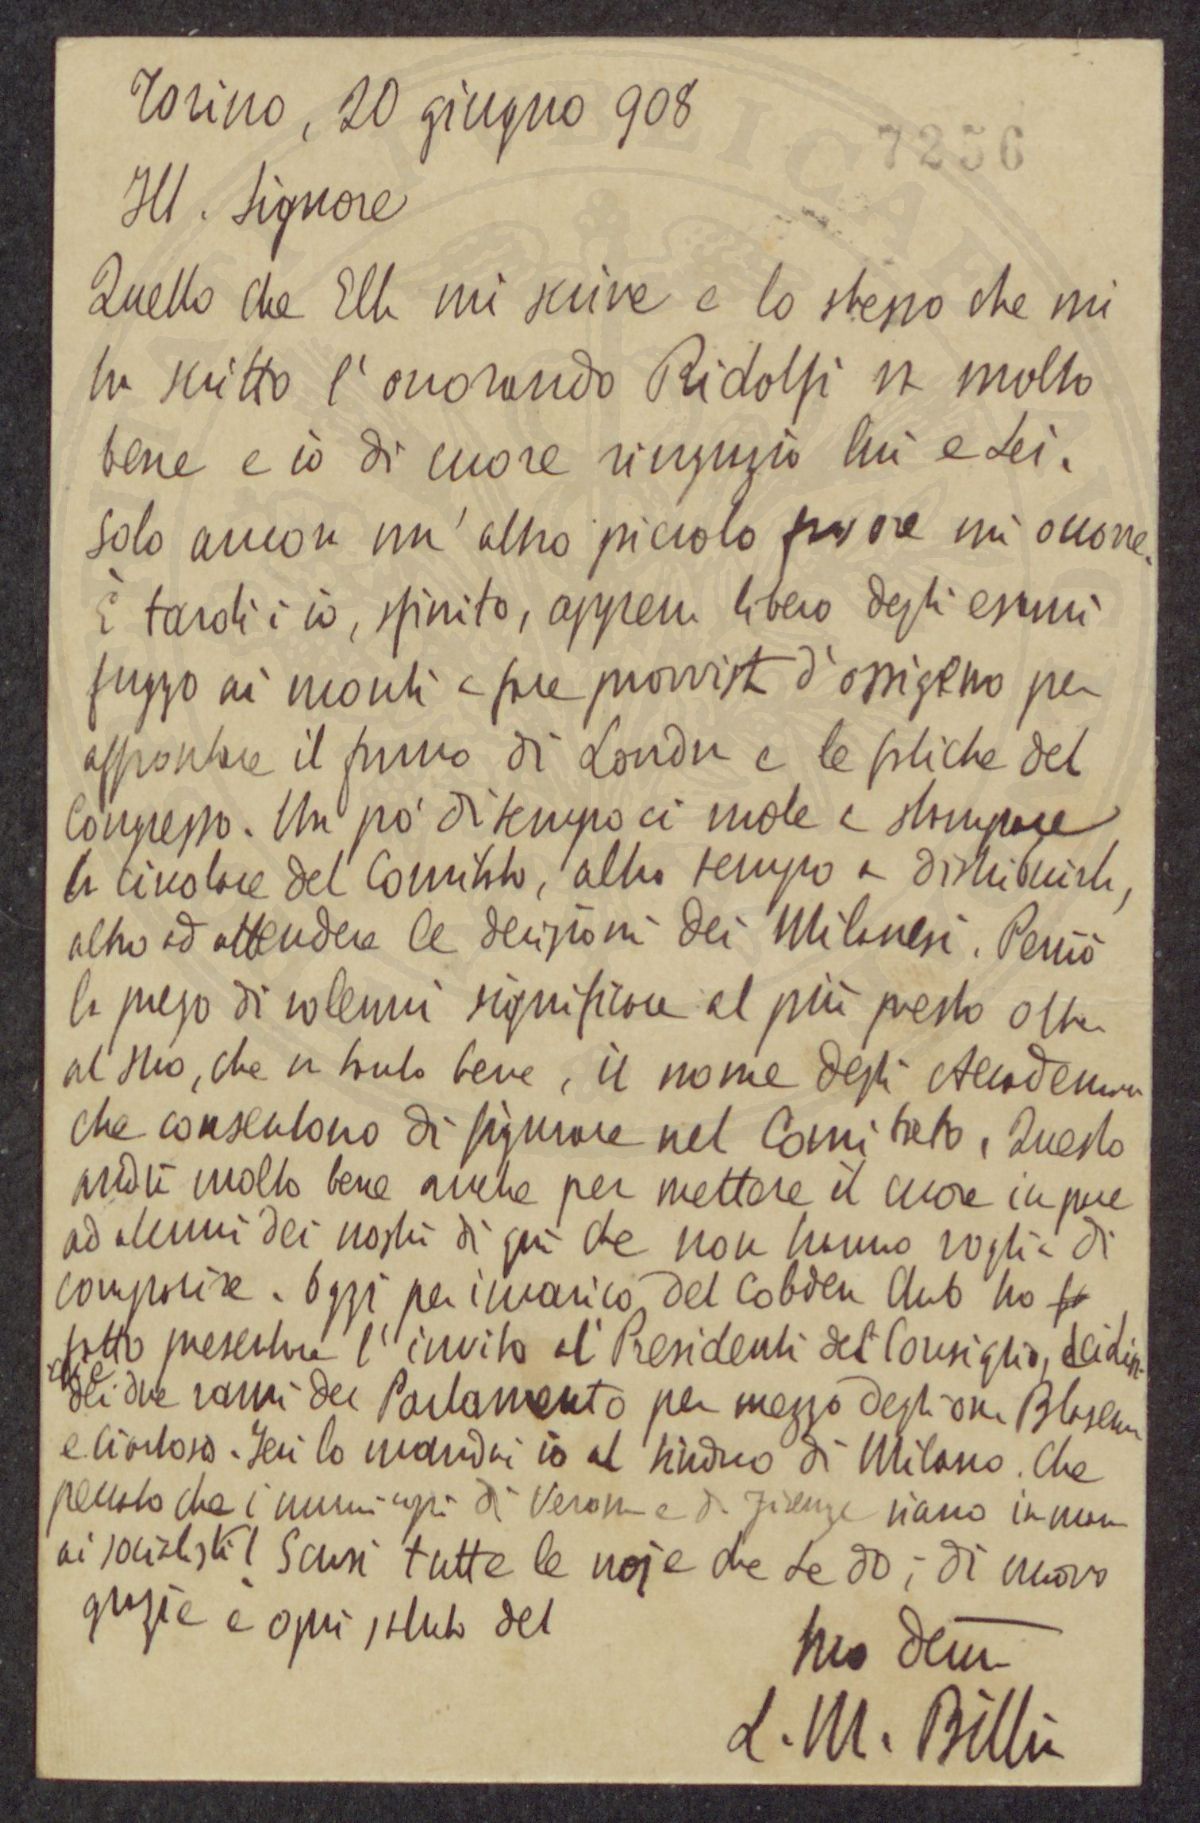 Torino, 20 giugno 908
7256
Ill. Signore
Quello che Ella mi scrive e lo stesso che mi
ha scritto l'onorando Ridolfi va molto
bene e io di cuore ringrazio lui e Lei.
Solo ancora un' altro piccolo favore mi occorre.
È tardi; io, sfinito, appena libero degli esami
fuggo ai monti a fare provvista d'ossigeno per
affrontare il fumo di Londra e le fatiche del
Congresso. Un po' di tempo ci vuole a stampare
la circolare del Comitato, altro tempo a distribuirla,
altro ad attendere le decisioni dei Milanesi. Perciò
la prego di volermi significare al più presto oltre
al suo, che va tanto bene, il nome degli
che consentono di figurare nel Comitato. Questo
andrà molto bene anche per mettere il cuore in pace
ad alcuni dei nostri di qui che non hanno voglia di
comparire. Oggi per incarico del Cobden Club ho
fatto presentare l'invito al Presidenti del Consiglio,
dei due rami del Parlamento per mezzo degli on. Blaserna
e . Ieri lo mandai io al Sindaco di Milano. Che
peccato che i municipi di Verona e di Firenze siano in mano
ai socialisti! Scusi tutte le noje che Le do; di nuovo
grazie e ogni saluto del
Suo dev.
L. M. Billia